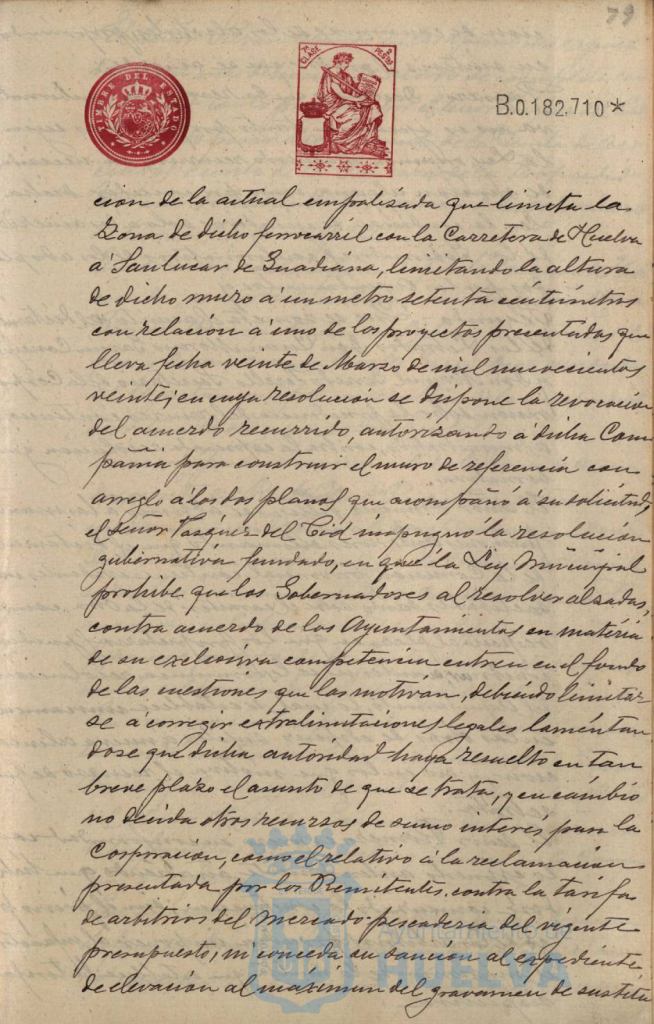 79
TIMBRE DEL ESTADO
7ª CLASE 2 PESETAS
B.0.182.710*
cion de la actual empalizada que limita la
Zona de dicho ferrocarril con la Carretera de Huelva
á Sanlucar de Guadiana, limitando la altura
de dicho muro á un metro setenta centímetros
con relacion á uno de los proyectos presentados que
lleva fecha veinte de Marzo de mil nuevecientos
veinte; en cuya resolución se dispone la revocacion
del acuerdo recurrido, autorizando á dicha Com
pañia para construir el muro de referencia con
arreglo á los dos planos que acompañó á su solicitud,
el señor Vasquez del Cid impugnó la resolución
gubernativa fundado, en que la Ley Municipal
prohibe que los Gobernadores al resolver alzadas,
contra acuerdo de los Ayuntamientos en matéria
de su exclusiva competencia entren en el fondo
de las cuestiones que las motivan, debiendo limitar
se á corregir extralimitaciones legales lamentan
dose que dicha autoridad haya resuelto en tan
breve plazo el asunto de que se trata, y en cambio
no decida otros recursos de sumo interés para la
Corporación, como el relativo á la reclamacion
presentada por los Remitentes contra la tarifa
de arbitrios del Mercado-pescaderia del vigente
presupuesto, ni conceda su sanción al expediente
de elevación al máximun del gravamen de sustitu
HUELVA